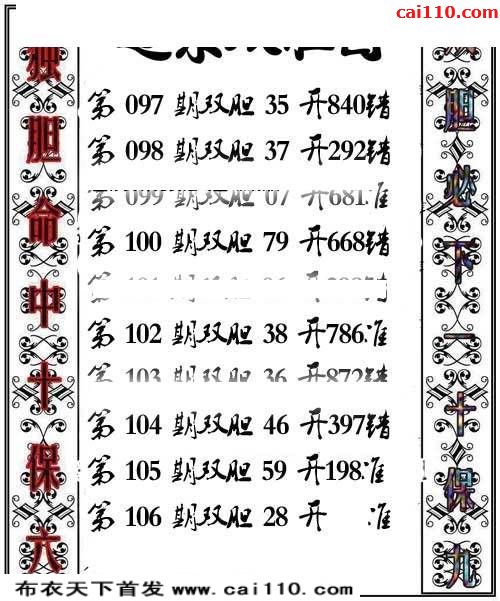 cai110.com
第 097 期双胆 35 开840错
第 098 期双胆 37 开292错
第 099 期双胆 07 开681准
第 100 期双胆 79 开668错
第 102 期双胆 38 开786准
第 103 期双胆 36 开872错
第 104 期双胆 46 开397错
第 105 期双胆 59 开198准
第 106 期双胆 28 开 准
独胆命中十保六
胆必下一十保九
布衣天下首发 www.cai110.com